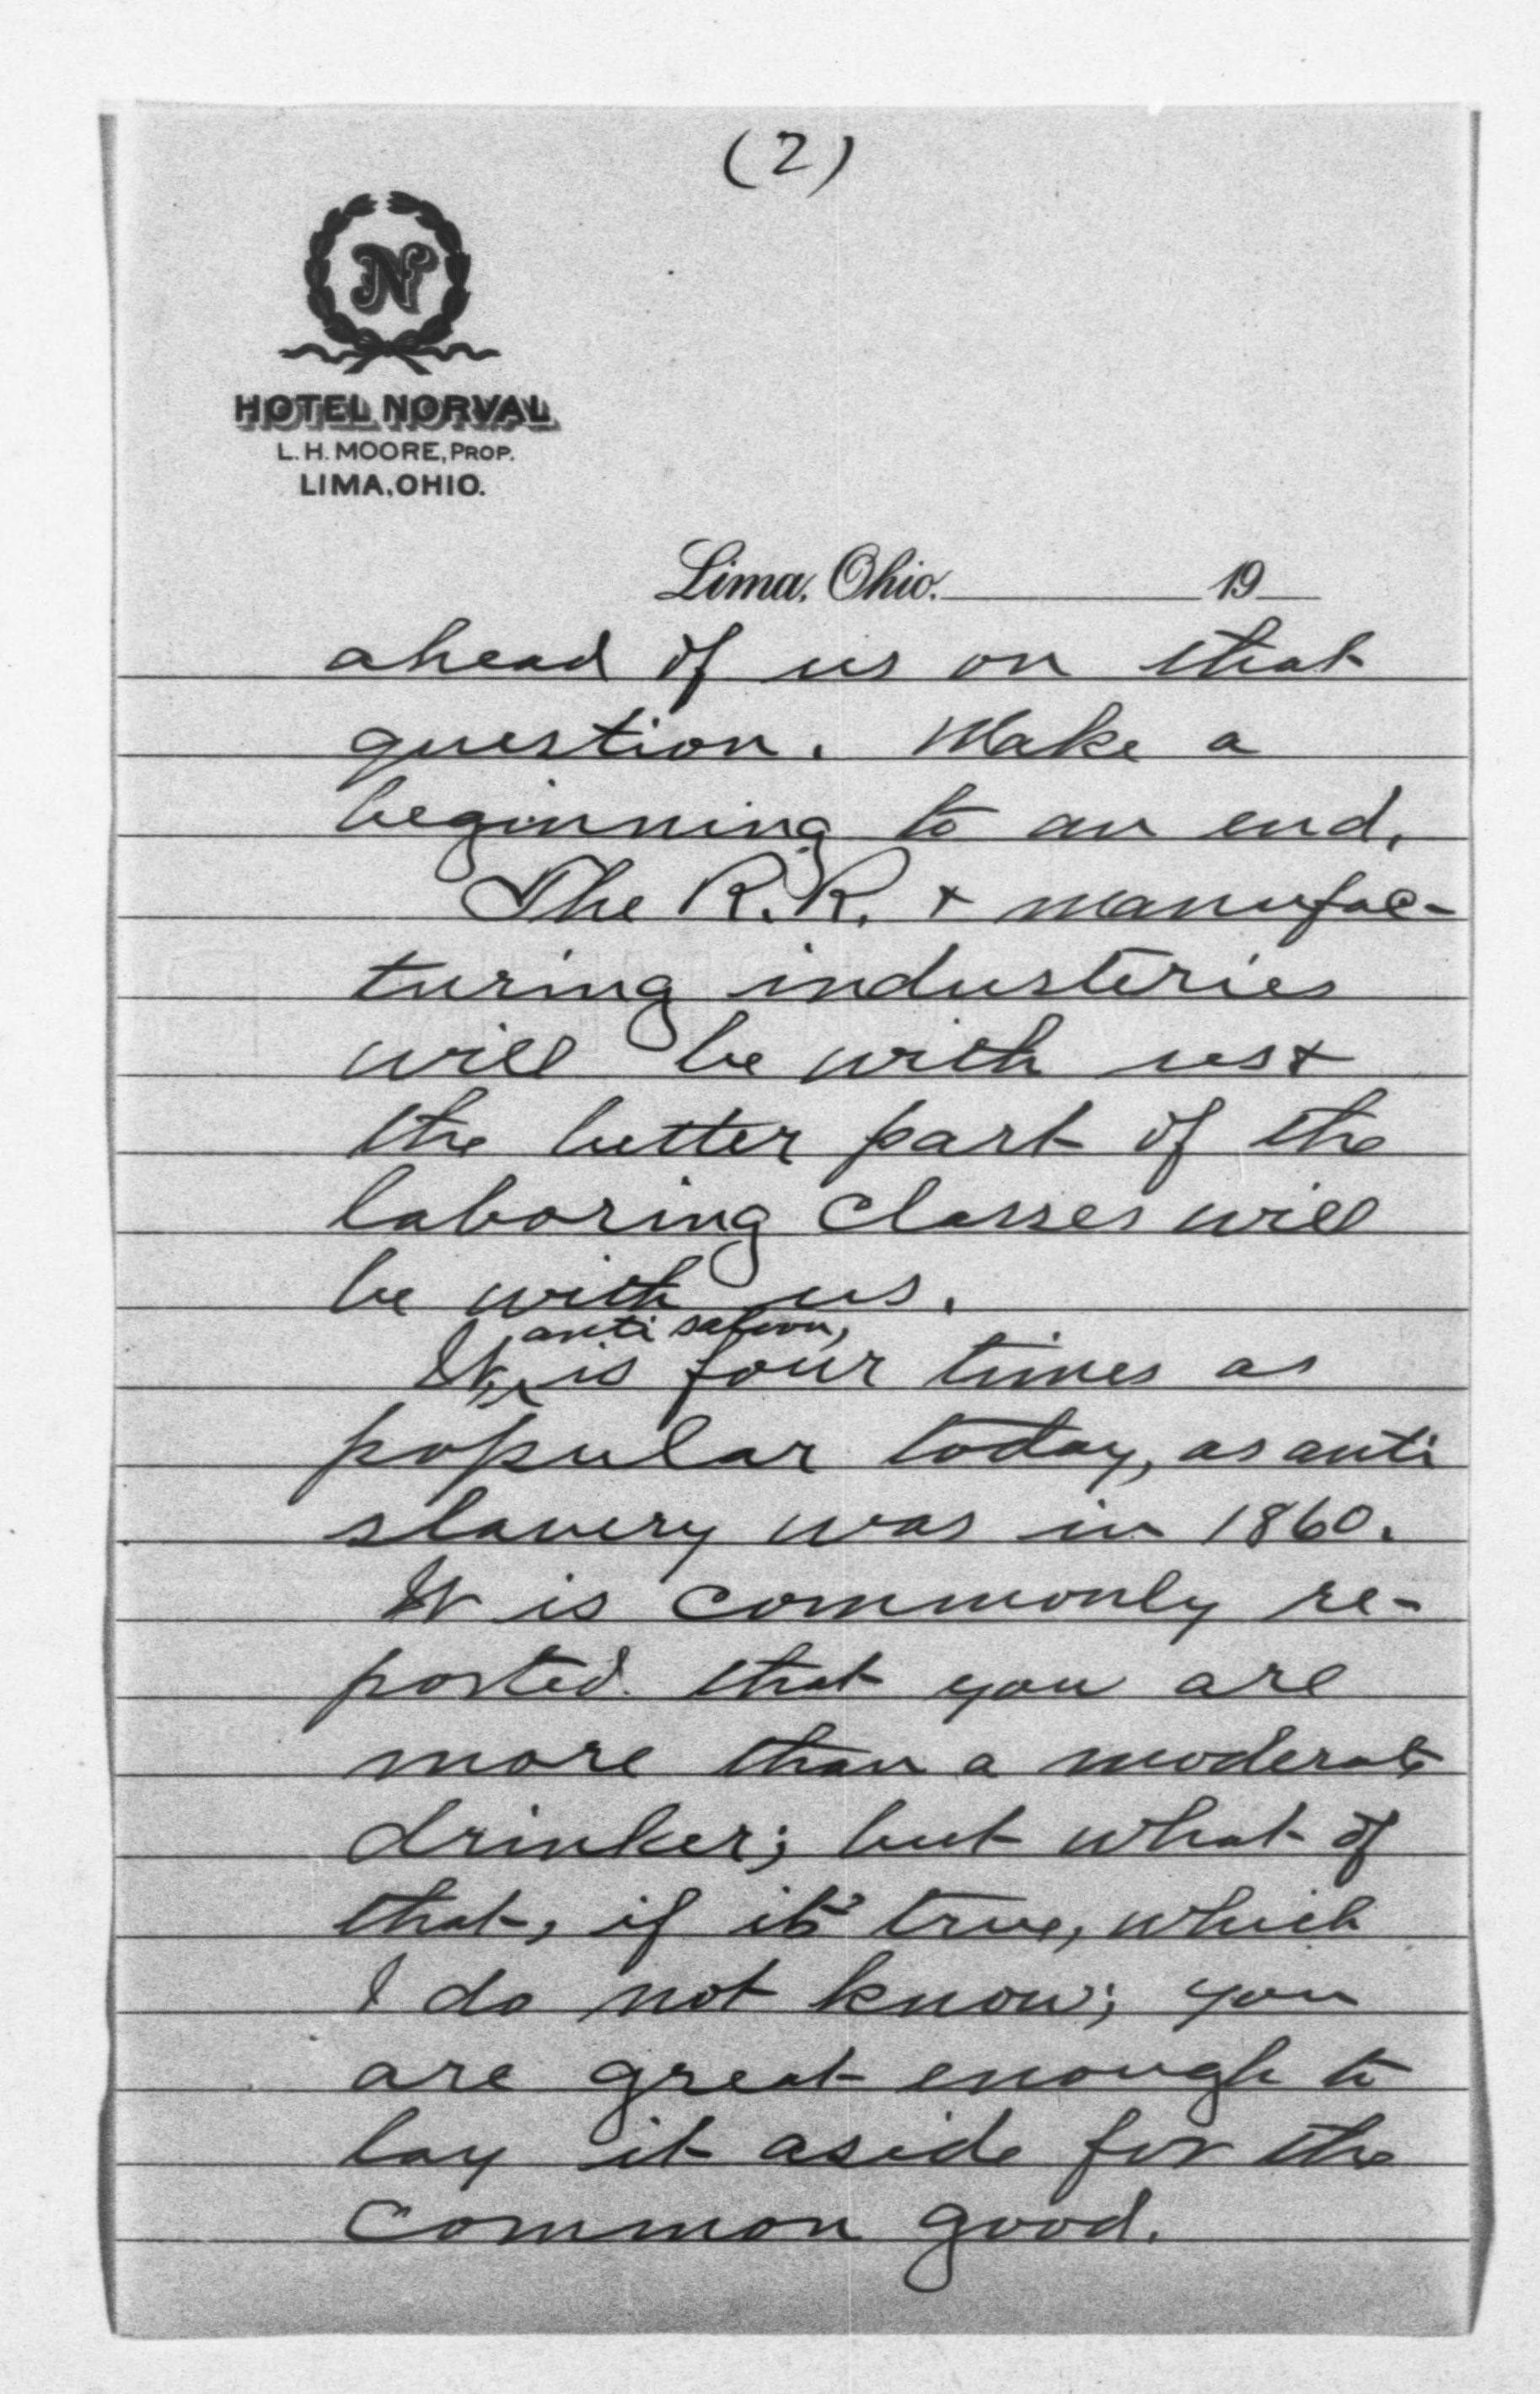 (2)
N
HOTEL NORVAL
L. H. MOORE, PROP.
LIMA, OHIO.
Lima, Ohio. 19
ahead of us on that
question. Make a
beginning to an end.
The R.R. & manufac-
turing industeries
will be with us &
the better part of the
laboring classes will
be with us.
anti saloon,
It, is four times as
popular today, as anti
slavery was in 1860.
It is commonly re-
ported that you are
more than a moderate
drinker; but what of
that, if it's true, which
I do not know; you
are great enough to
lay it aside for the
common good.